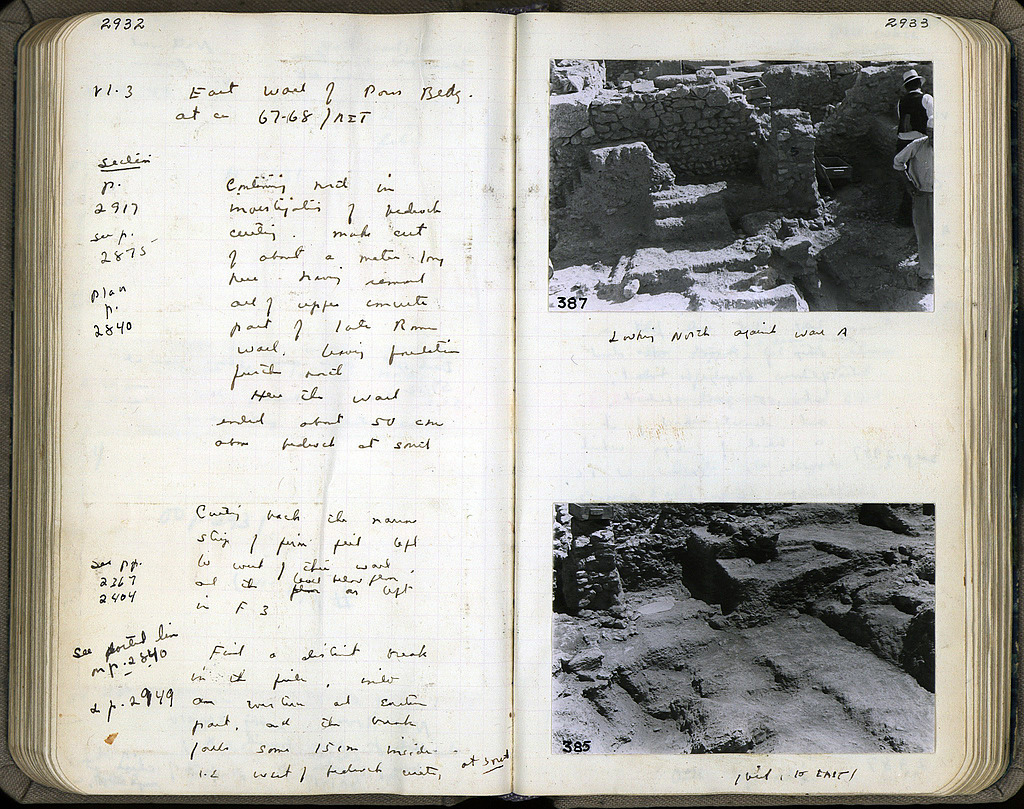 2932
VI.3 East wall of Poros Bldg.
at ca 67-68/
Section
p.
2917
see p.
2875
Plan
p.
2840
Continuing north in
investigation of bedrock
cutting. make cut
of about a meter long
here having removed
all of upper concrete
part of late Roman
wall, leaving foundation
further north
Here the wall
ended about 50 cm
above bedrock at south
Cutting back the narrow
strip of left
to west of this wall,
and the level below floor
floor as left
in F 3
see pp.
2367
2404
see dotted line
on p. 2840
& p. 2949
Find a distinct break
in the
part, and the break
some 15 cm inside
i.e. west of bedrock cutting at south
2933
387
Looking North against Wall A
385
(, to EAST)